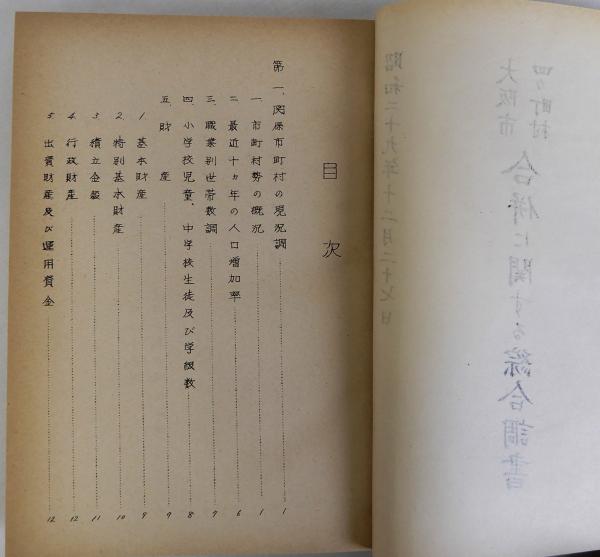 大阪市
四ヶ町村
合併に関する綜合調書
昭和二十九年十二月二十七日
目次
第一、関係市町村の現況調 1
一、市町村勢の概況 1
二、最近十ヵ年の人口増加率 6
三、職業別世帯数調 7
四、小学校児童、中学校生徒及び学級数 8
五、財産 9
1. 基本財産 9
2. 特別基本財産 10
3. 積立金穀 11
4. 行政財産 12
5. 出資財産及び運用資金 12